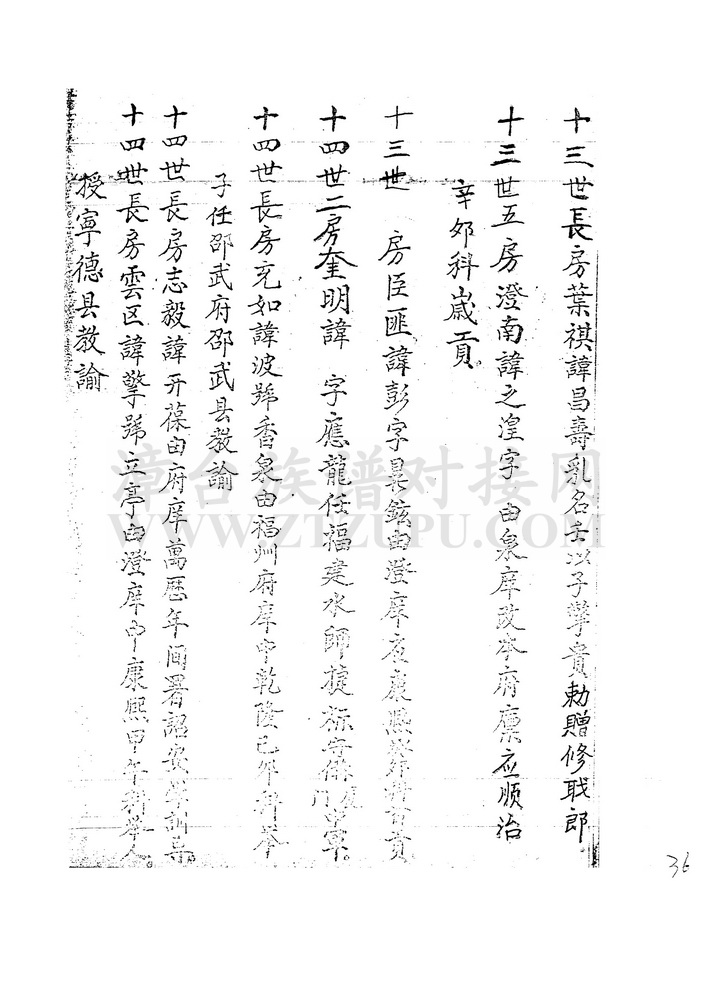 十三世長房葉祺諱昌壽乳名壬以子擎貴勅贈修戢郎
十三世五房澄南諱之湟字 由泉庠改本府廪应順治
辛夘科歳貢
十三世 房臣匪諱彭字昊鉉由澄庠 康熙 貢
十四世二房奎明諱 字應龍任福建水師提标 中軍。
十四世長房充如諱波號香泉由福州府庠中乾隆己夘科举
子任邵武府邵武县教諭
十四世長房志毅諱开葆由府庠萬歷年间署詔安學訓导
十四世長房雲区諱擎號立亭由澄庠中康熙甲午科举人。
授寧德县教諭
漳台族谱对接网
WWW.ZTZUPU.COM
36